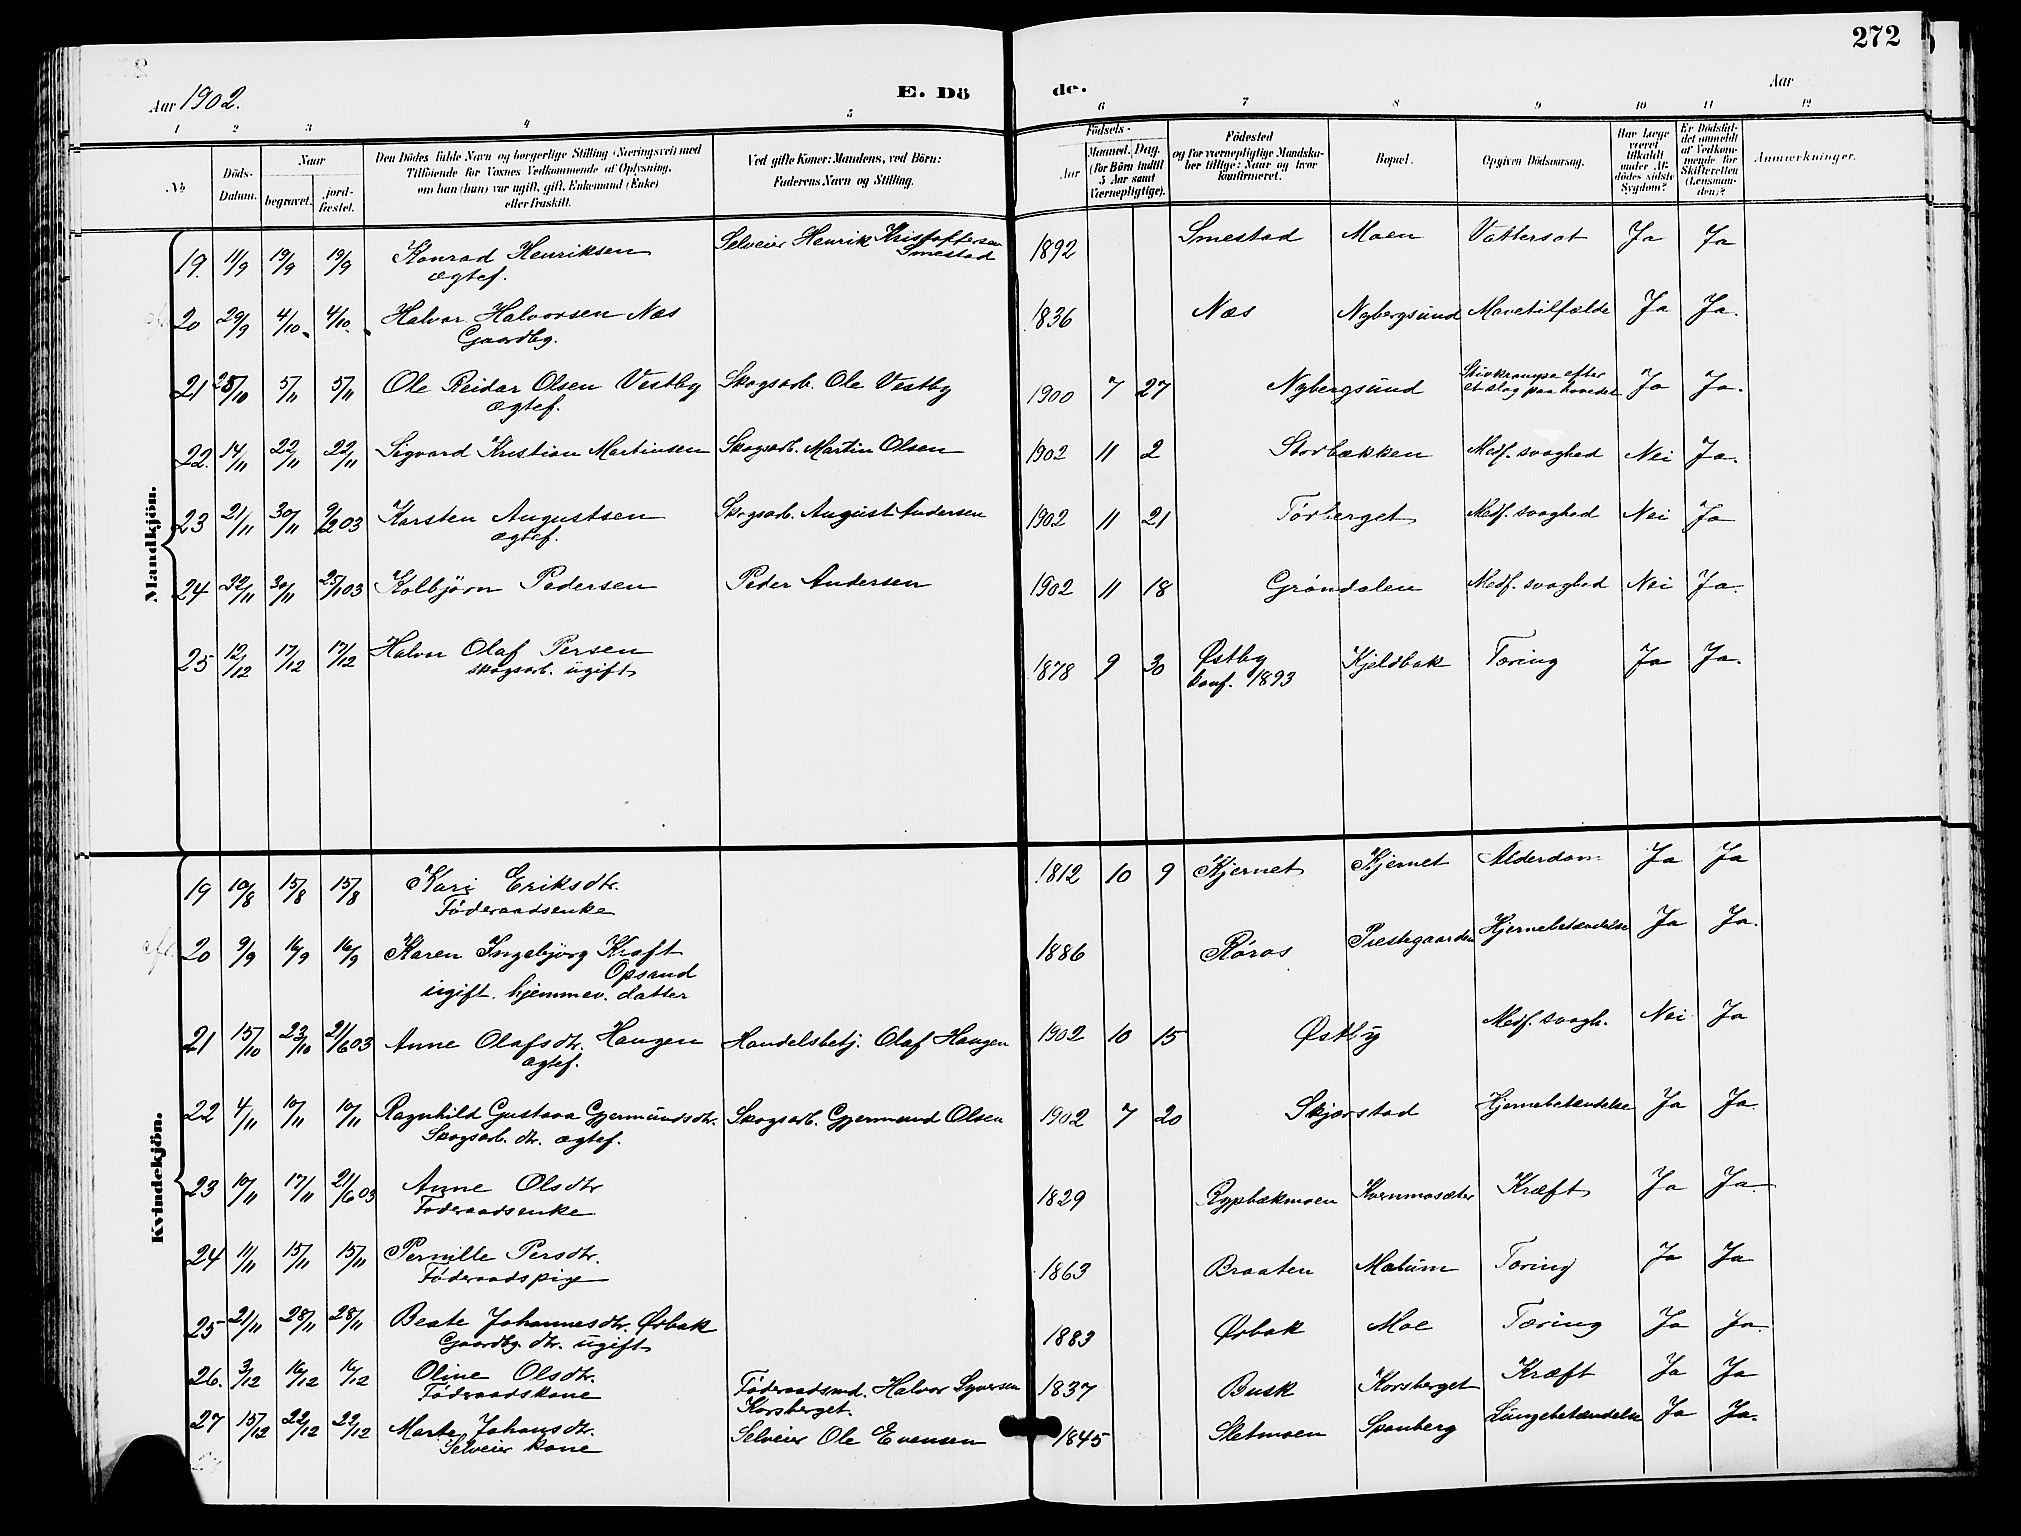 272
Aar 1902.
E. Dö
de.
Aar
1 2 3 4 5 6 7 8 9 10 11 12
№
Döds-Datum.
Naar
begravet.
jord-fæstet.
Den Dödes fulde Navn og borgerlige Stilling (Næringsvei) med
Tilföiende for Voxnes Vedkommende af Oplysning,
om han (hun) var ugift, gift, Enkemand (Enke)
eller fraskilt.
Ved gifte Koner: Mandens, ved Börn:
Faderens Navn og Stilling.
Födsels-
Aar
Maaned. Dag.
(for Börn indtil
5 Aar samt
Værnepligtige).
Födested
og for værnepligtige Mandska-
ber tillige: Naar og hvor
konfirmeret.
Bopæl.
Opgiven Dödsaarsag.
Har Læge
været
tilkaldt
under Af-
dödes sidste
Sygdom?
Er Dödsfal-
det anmeldt
af Vedkom-
mende for
Skifteretten
(Lensman-
den)?
Anmærkninger.
Mandkjön.
19. 11/9 19/9 19/9 Konrad Henriksen Selveier Henrik Kristoffersen 1892 Smestad Moen Vattersot Ja Ja
ægtef. Smestad
20 29/9 4/10 4/10 Halvor Halvorsen Næs 1836 Næs Nybergsund Mavetilfælde Ja Ja.
Gaardbg.
21 28/10 5/11 5/11 Ole Reidar Olsen Vestby Skogsarb. Ole Vestby 1900 7 27 Nybergsund Stivkrampe efter Ja Ja.
ægtef. et slag paa hovedet
22. 14/11 22/11 22/11 Sigvard Kristian Martinsen Skogsarb. Martin Olsen 1902 11 2 Storbækken Medf. svaghed Nei Ja.
23 21/11 30/11 9/2 03 Karsten Augustsen Skogsarb. August Andersen 1902 11 21 Tørberget Medf. svaghed Nei Ja
ægtef.
24 22/11 30/11 25/1 03 Kolbjörn Pedersen Peder Andersen 1902 11 18 Grøndalen Medf. svaghed Nei Ja.
25 12/12 17/12 17/12 Halvor Olaf Persen 1878 9 30 Østby Kjeldbak Tæring Ja Ja.
skogsarb. ugift konf. 1893
Kvindekjön.
19 10/8 15/8 15/8 Kari Eriksdtr. 1812 10 9 Kjernet Kjernet Alderdom Ja Ja
Föderaadsenke
20 9/9 16/9 16/9 Karen Ingebjörg Kraft 1886 Røros Prestegaarden Hjernebetændelse Ja Ja.
Opsand
ugift. hjemmev. datter
21 15/10 23/10 21/6 03 Anne Olafsdtr. Haugen Handelsbetj. Olaf Haugen 1902 10 15 Østby Medf. svagh. Nei Ja
ægtef.
22 4/11 10/11 10/11 Ragnhild Gustava Gjermundsdtr. Skogsarb. Gjermund Olsen 1902 7 20 Skjærstad Hjernebetændelse Ja Ja.
Skogsarb. dtr. ægtef.
23 10/11 17/11 21/6 03 Anne Olsdtr 1829 Rypbækmoen Kvernmosæter Kræft Ja Ja.
Föderaadsenke
24 11/11 15/11 15/11 Pernille Persdtr. 1863 Braaten Mælum Tæring Ja Ja
Föderaadspige
25 21/11 28/11 28/11 Beate Johannesdtr. Ørbæk 1883 Ørbæk Moe Tæring Ja Ja.
Gaardbg. dtr. ugift
26. 3/12 16/12 16/12 Oline Olsdtr. Föderaadsmd. Halvor Syversen 1837 Busk Korsberget Kræft Ja Ja
Föderaadskone Korsberget.
27 15/12 22/12 22/12 Marte Johansdtr. Selveier Ole Evensen 1845 Sletmoen Spanberg Lungebetændelse Ja Ja.
Selveier kone